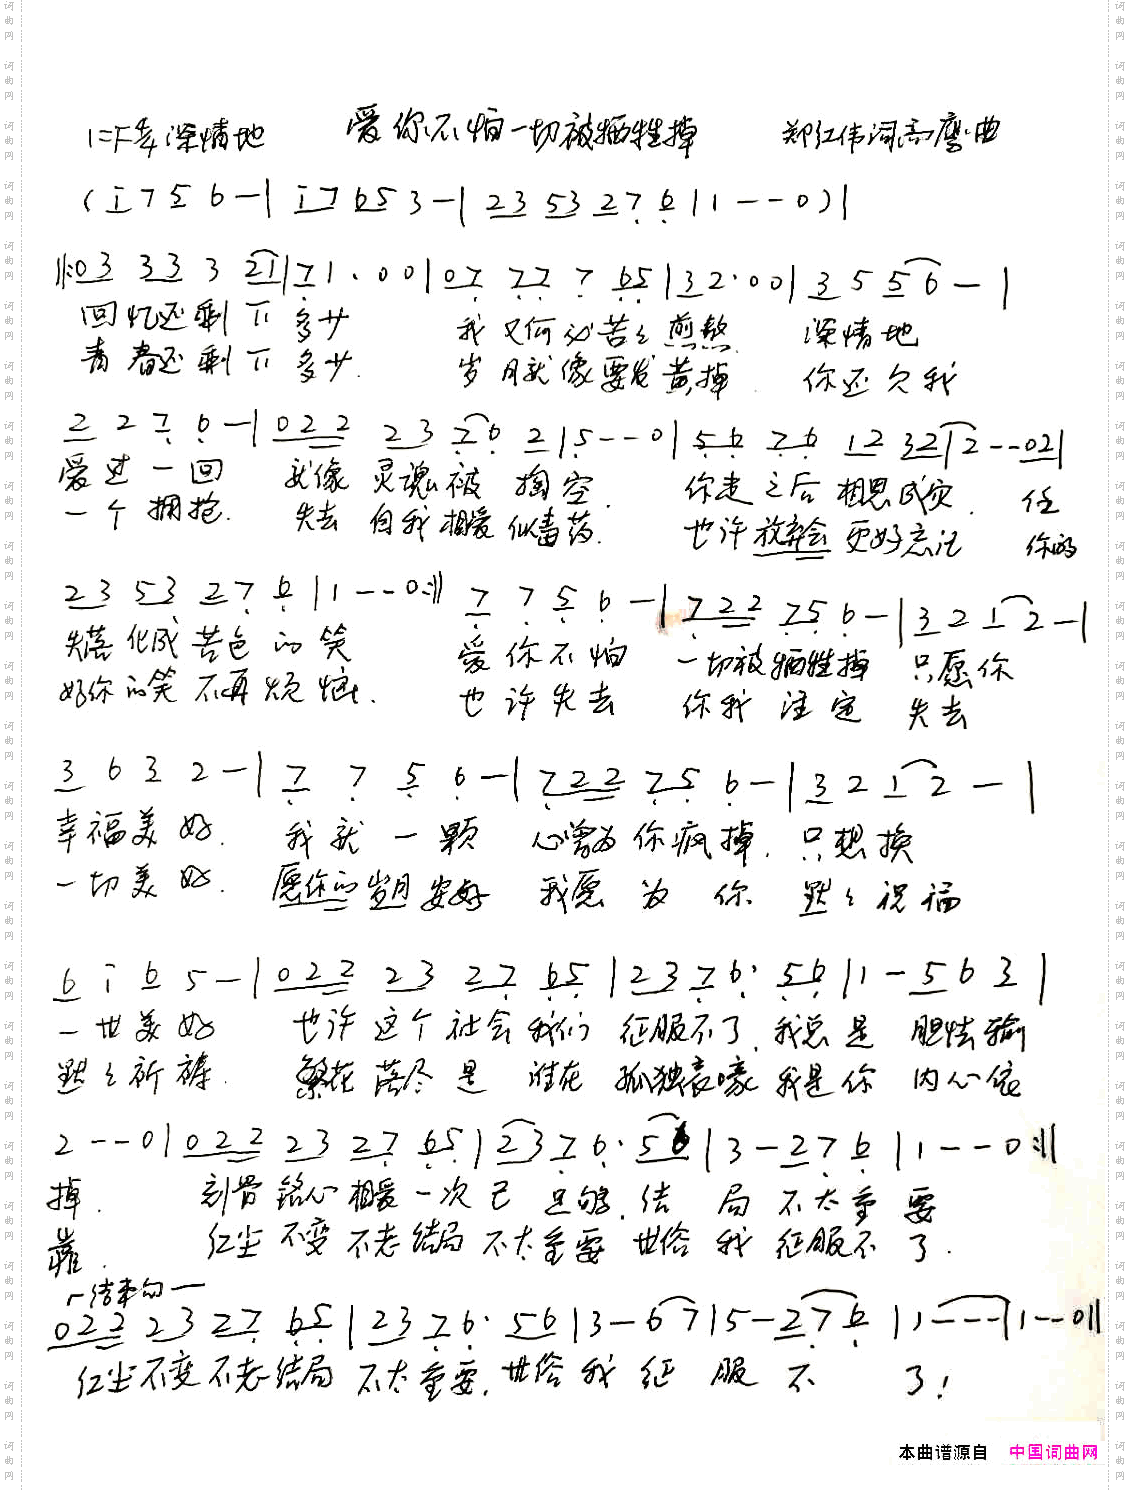 1=F 4/4 深情地 爱你不怕一切被牺牲掉 郑红伟词高鹰曲
(i 7 5 6 -| i 7 6 5 3 -| 2 3 5 3 2 7 6 | 1 - - 0 )|
‖:0 3 3 3 3 2 1 | 7 1 · 0 0 | 0 7 7 7 7 6 5 | 3 2 · 0 0 | 3 5 5 6 - |
回忆还剩下多少 我又何必苦々煎熬 深情地
青春还剩下多少. 岁月就像要发黄掉. 你还欠我
2 2 7 6 -| 0 2 2 2 3 7 6 2 | 5 - - 0 | 5 6 7 6 1 2 3 2 1 | 2 - - 0 2 |
爱过一回 就像灵魂被掏空. 你走之后相思成灾. 任
一个拥抱. 失去自我相爱似毒药. 也许放弃会更好忘记 你的
2 3 5 3 2 7 6 | 1 - - 0 :‖ 7 7 5 6 -| 7 2 2 7 5 6 -| 3 2 1 2 -|
失落化成苦色的笑 爱你不怕 一切被牺牲掉 只愿你
好你的笑不再烦恼. 也许失去 你我注定 失去
3 6 3 2 -| 7 7 5 6 -| 7 2 2 7 5 6 -| 3 2 1 2 - |
幸福美好. 我就一颗 心曾为你疯掉. 只想换
一切美好. 愿你的岁月安好 我愿为你 默々祝福
6 i 6 5 -| 0 2 2 2 3 2 7 6 5 | 2 3 7 6 · 5 6 | 1 - 5 6 3 |
一世美好 也许这个社会我们 征服不了.我总是 胆怯输
默々祈祷. 繁花落尽是谁在 孤独哀嚎 我是你 内心依
2 - - 0 | 0 2 2 2 3 2 7 6 5 | 2 3 7 6 · 5 6 | 3 - 2 7 6 | 1 - - 0 :‖
掉. 刻骨铭心相爱一次已足够.结局不太重要
靠. 红尘不变不老结局不太重要 世俗我征服不了.
┌结束句—
0 2 2 2 3 2 7 6 5 | 2 3 7 6 · 5 6 | 3 - 6 7 | 5 - 2 7 6 | 1 - - - | 1 - - 0 ‖
红尘不变不老结局 不太重要.世俗我征服不了!
本曲谱源自 中国词曲网